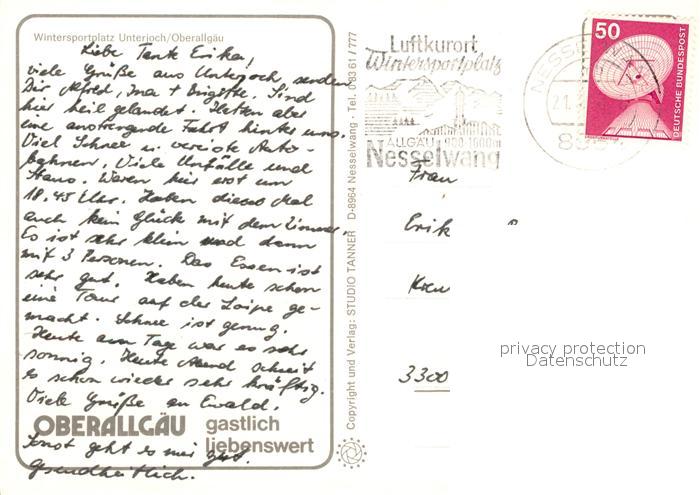 Wintersportplatz Unterjoch/Oberallgäu
Liebe Tante Erika,
viele Grüße aus Unterjoch, senden
Dir Alfred, Ina + Brigitte. Sind
hier heil gelandet. Hatten aber
eine anstrengende Fahrt hinter uns.
Viel Schnee u. vereiste Auto-
bahnen. Viele Unfälle und
Staus. Waren hier erst um
18.45 Uhr. Haben dieses Mal
auch kein Glück mit dem Zimmer.
Es ist sehr klein und dann
mit 3 Personen. Das Essen ist
sehr gut. Haben heute schon
eine Tour auf der Loipe ge-
macht. Schnee ist genug.
Heute am Tage war es sehr
sonnig. Heute Abend schneit
es schon wieder sehr kräftig.
Viele Grüße an Ewald.
OBERALLGÄU gastlich
liebenswert
Sonst geht es mir gut.
gesundheitlich.
Copyright und Verlag: STUDIO TANNER D-8964 Nesselwang · Tel. 0 83 61 / 777
Luftkurort
Wintersportplatz
ALLGÄU 900-1600m
Nesselwang
NESSELWANG
21.
50
DEUTSCHE BUNDESPOST
Frau
Erik
3300
privacy protection
Datenschutz